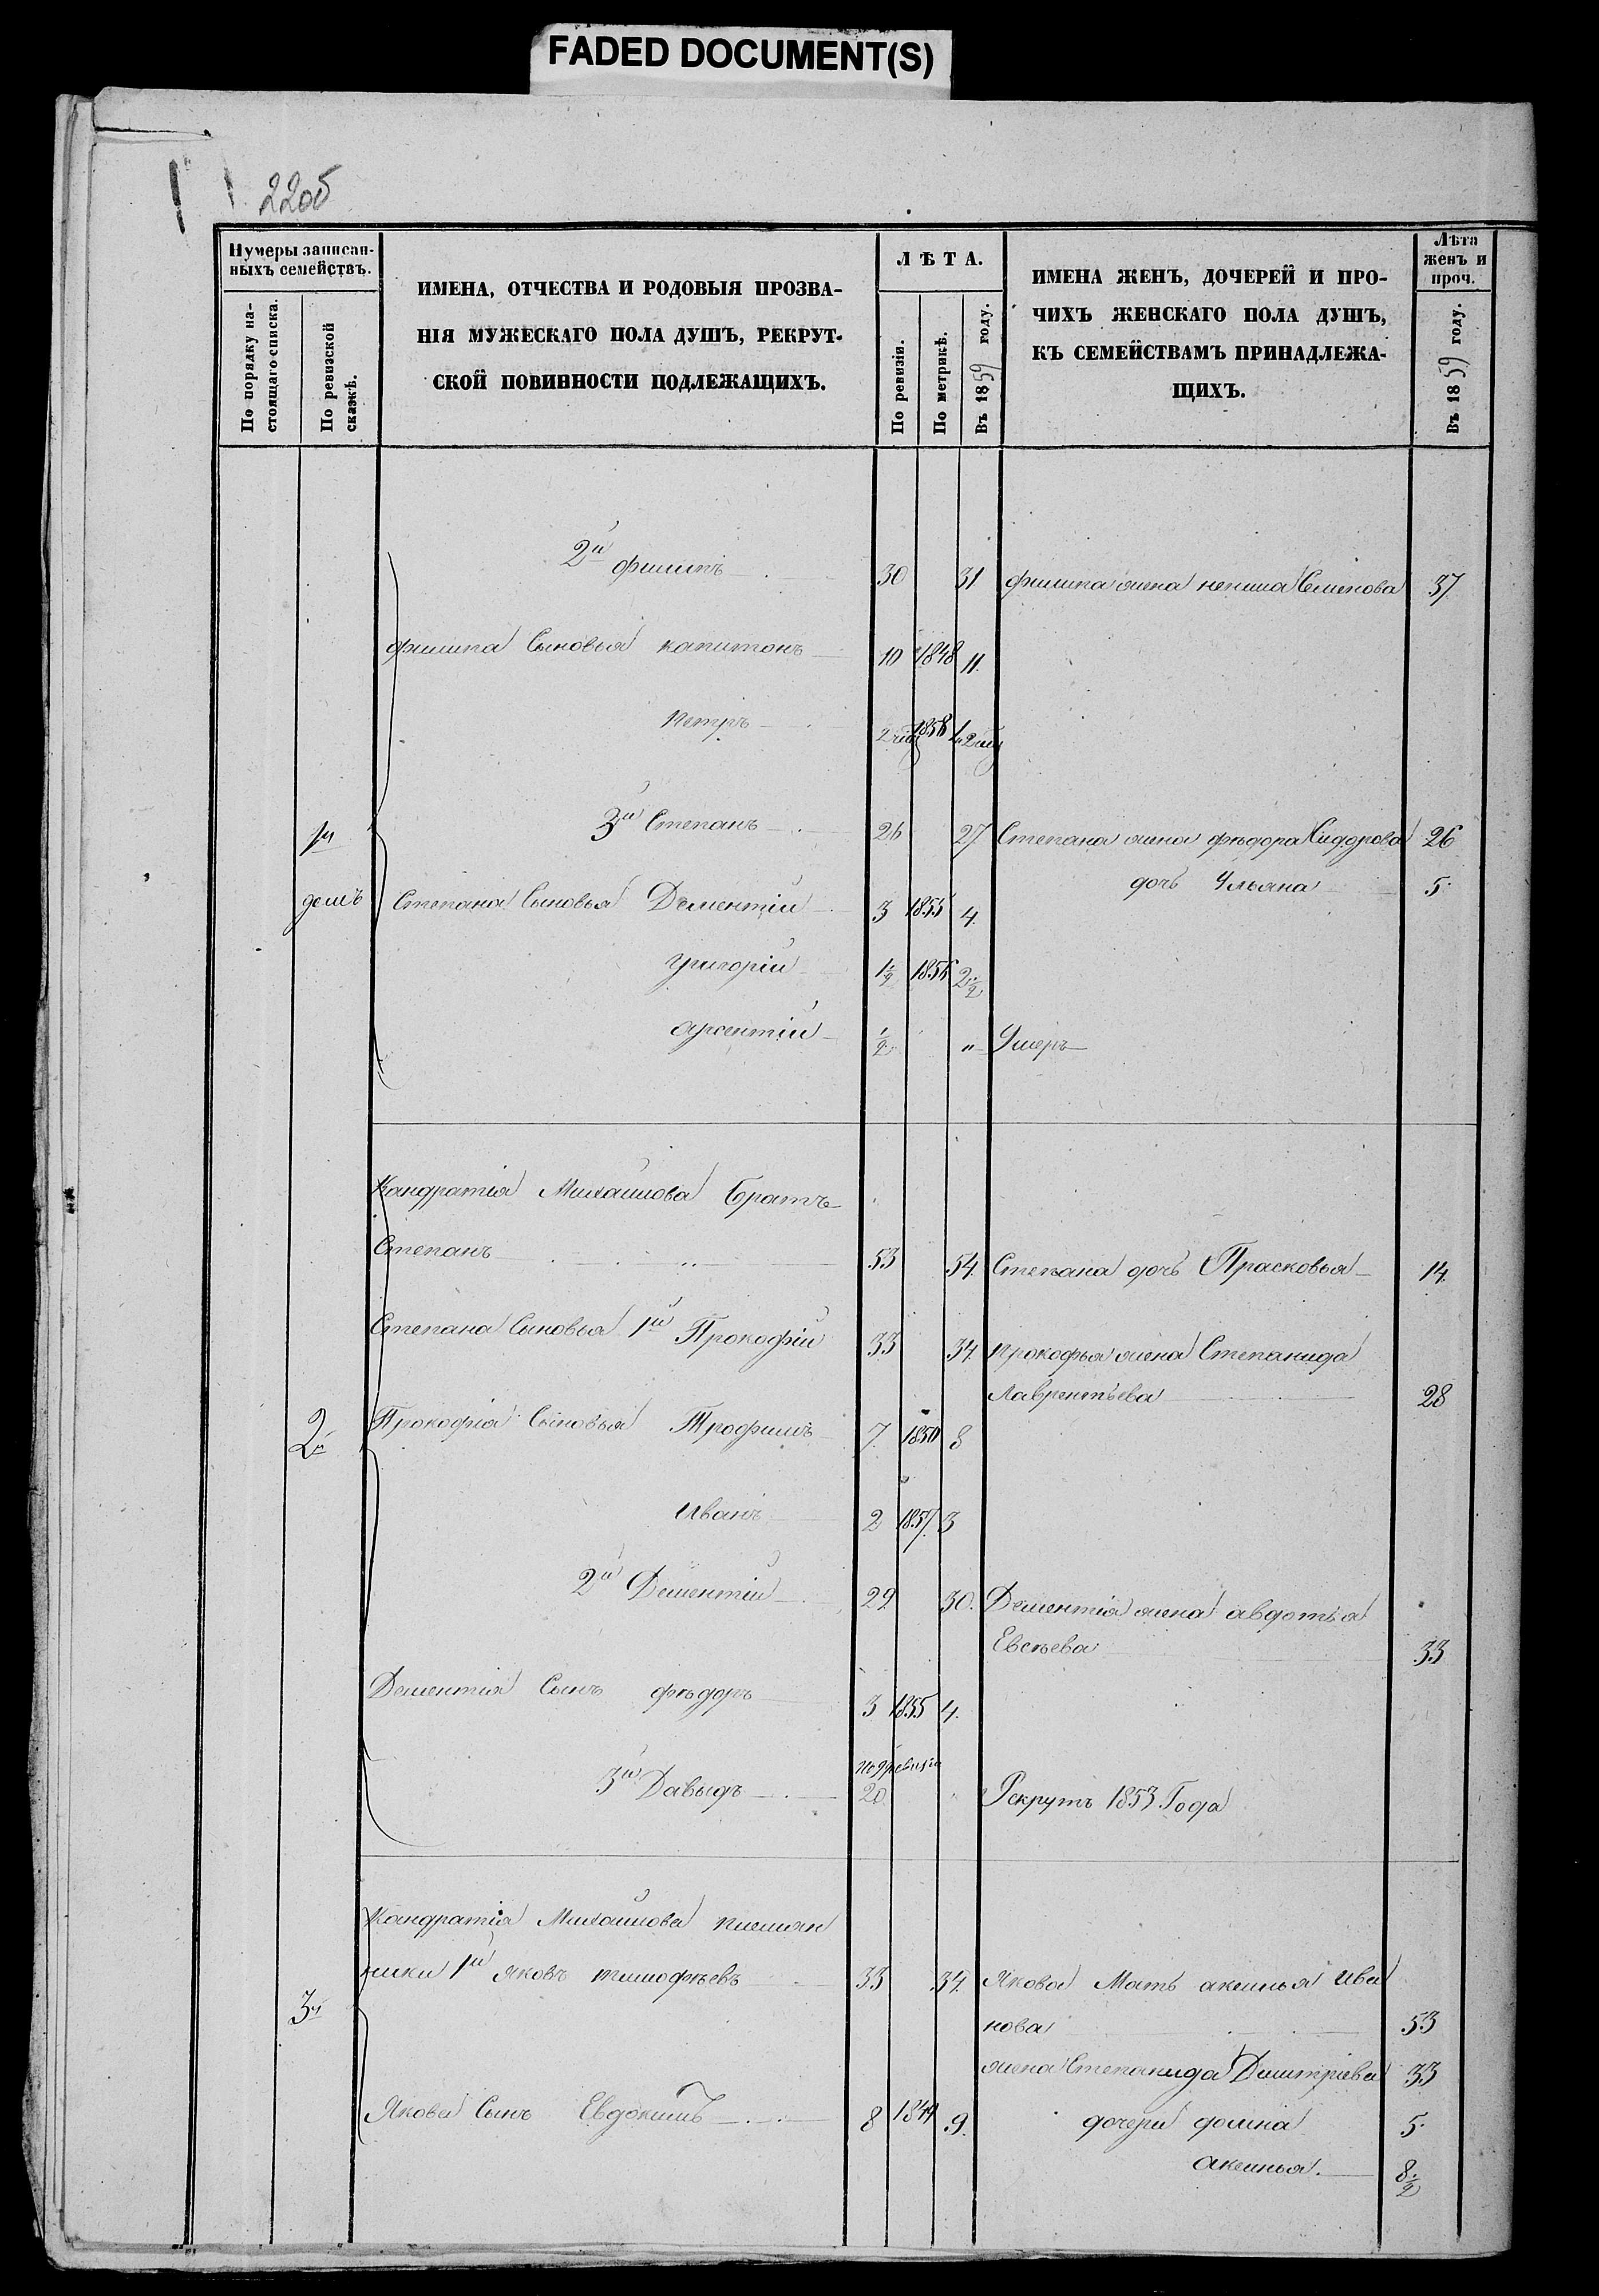 FADED DOCUMENT(S)
22об
Нумеры записан-
ныхъ семействъ.
По порядку на-
стоящаго списка.
По ревизской
сказкѣ.
ИМЕНА, ОТЧЕСТВА И РОДОВЫЯ ПРОЗВА-
НІЯ МУЖЕСКАГО ПОЛА ДУШЪ, РЕКРУТ-
СКОЙ ПОВИННОСТИ ПОДЛЕЖАЩИХЪ.
ЛѢТА.
По ревизіи.
По метрикѣ.
Въ 1859 году.
ИМЕНА ЖЕНЪ, ДОЧЕРЕЙ И ПРО-
ЧИХЪ ЖЕНСКАГО ПОЛА ДУШЪ,
КЪ СЕМЕЙСТВАМЪ ПРИНАДЛЕЖА-
ЩИХЪ.
Лѣта
женъ и
проч.
Въ 1859 году.
2й филипъ 30 31 филипа жена Семенова 37
филипа Сыновья капитонъ 10 1848 11.
петръ 1858
3й Степанъ 26 27 Степана жена фѣдора Сидорова 26
1й
дочь Ульяна 5.
Степана Сыновья Дементій 3 1855 4.
григорій 1½ 1856 2½
½ " Умеръ
Кандратія Михайлова Братъ
Степанъ 53 54. Степана дочь Прасковья 14.
Степана Сыновья 1й Прокофій 33 34. прокофья жена Степанида
Лаврентьева 28
2й
Прокофія Сыновья Трофимъ 7. 1850 8
Иванъ 2 1857. 3
2й Дементій 29 30. Дементія жена авдотья
Евсѣева 33
Дементія Сынъ фѣдоръ 3 1855 4.
3й Давыдъ 20 Рекрутъ 1853 Года
Кандратія Михайлова племян
ники 1й яковъ тимофѣевъ 33 34. Якова Мать аксинья ива
нова 53
3й
жена Степанида Дмитріева 33
Якова Сынъ Евдокимъ 8 1849 9. дочери домна 5.
аксинья. 8½